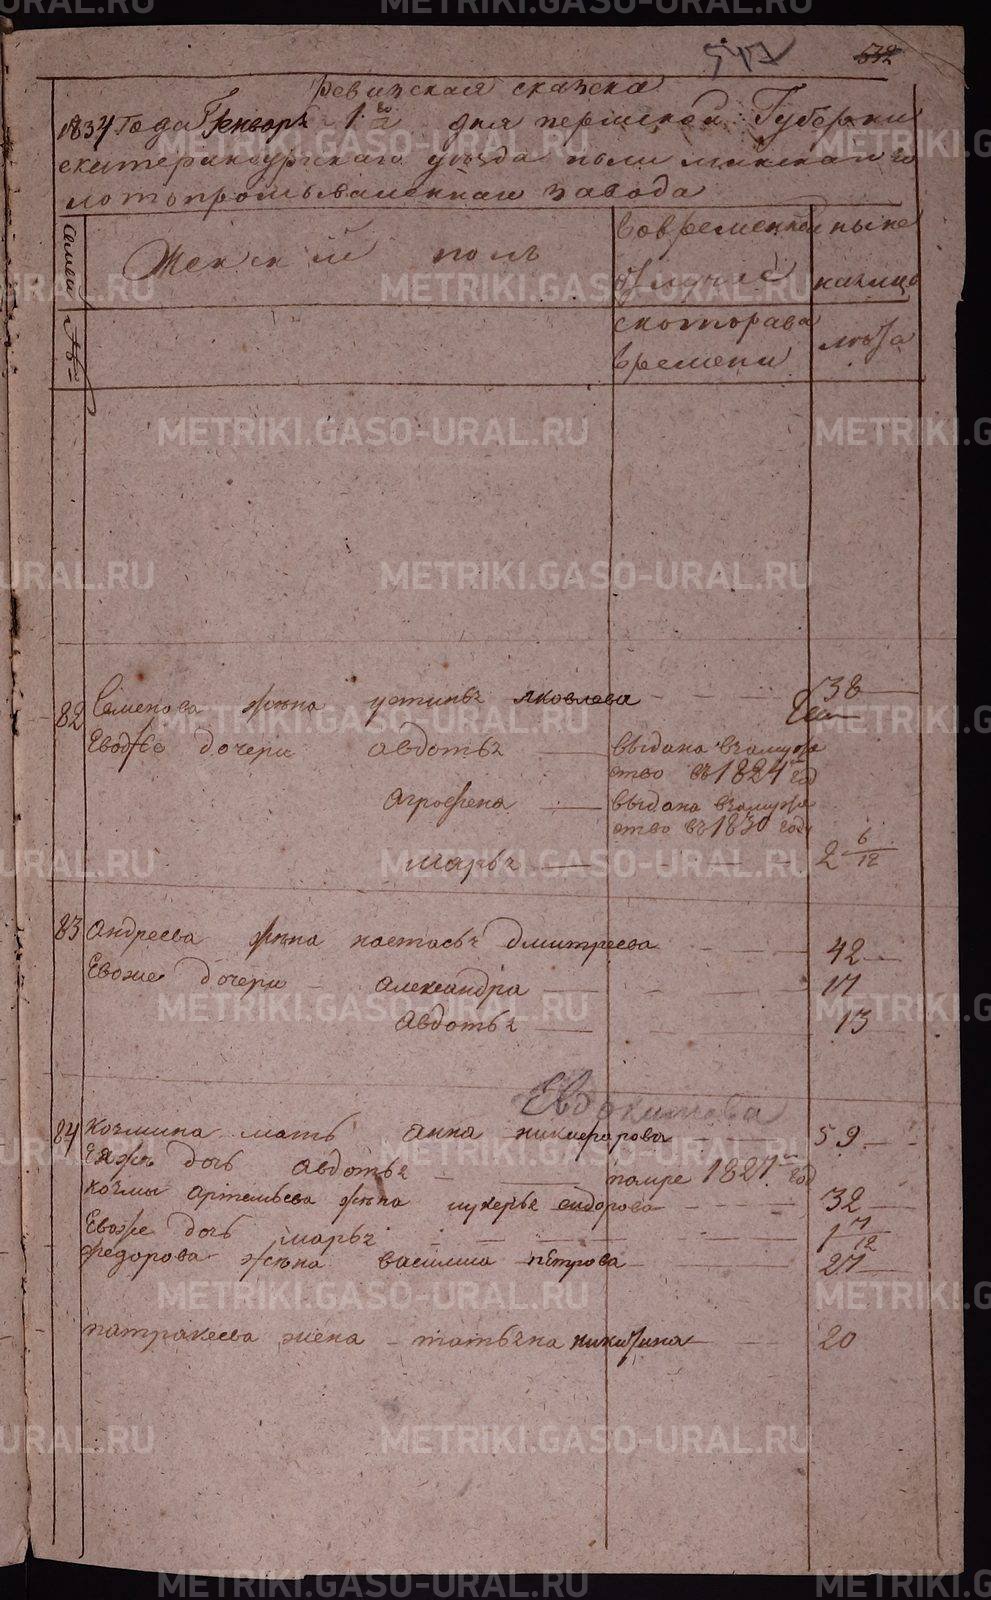 547
632
Ревизская сказска
1834 года Генворь 1го дня пермской Губерни
екатеринбурскаго уезда
лотопромываленнаго завода
семеи №
Женскй полъ
вовременной
отлучке
скоторава
времени
ныне
налицо
лѣта
82 Семенова жѣна устинья яковлева 38
Евоѳже дочери авдотья выдана взамуже
ство въ 1824м год
агрофена выдана взамуже
ство въ 1830 году
марья 2 6/12
83 андреева жѣна настасья дмитреева 42
Евоже дочери александра 17
авдотья 13
Евдокимова
84 козмина мать анна никифорова 59
Еяжъ дочь авдотья помре 1827м год
козмы артемьева жѣна лукерья сидорова 32
Евоже дочь марья 1 7/12
федорова жѣна василиса петрова 27
патракеева жена татьяна никитина 20
METRIKI.GASO-URAL.RU